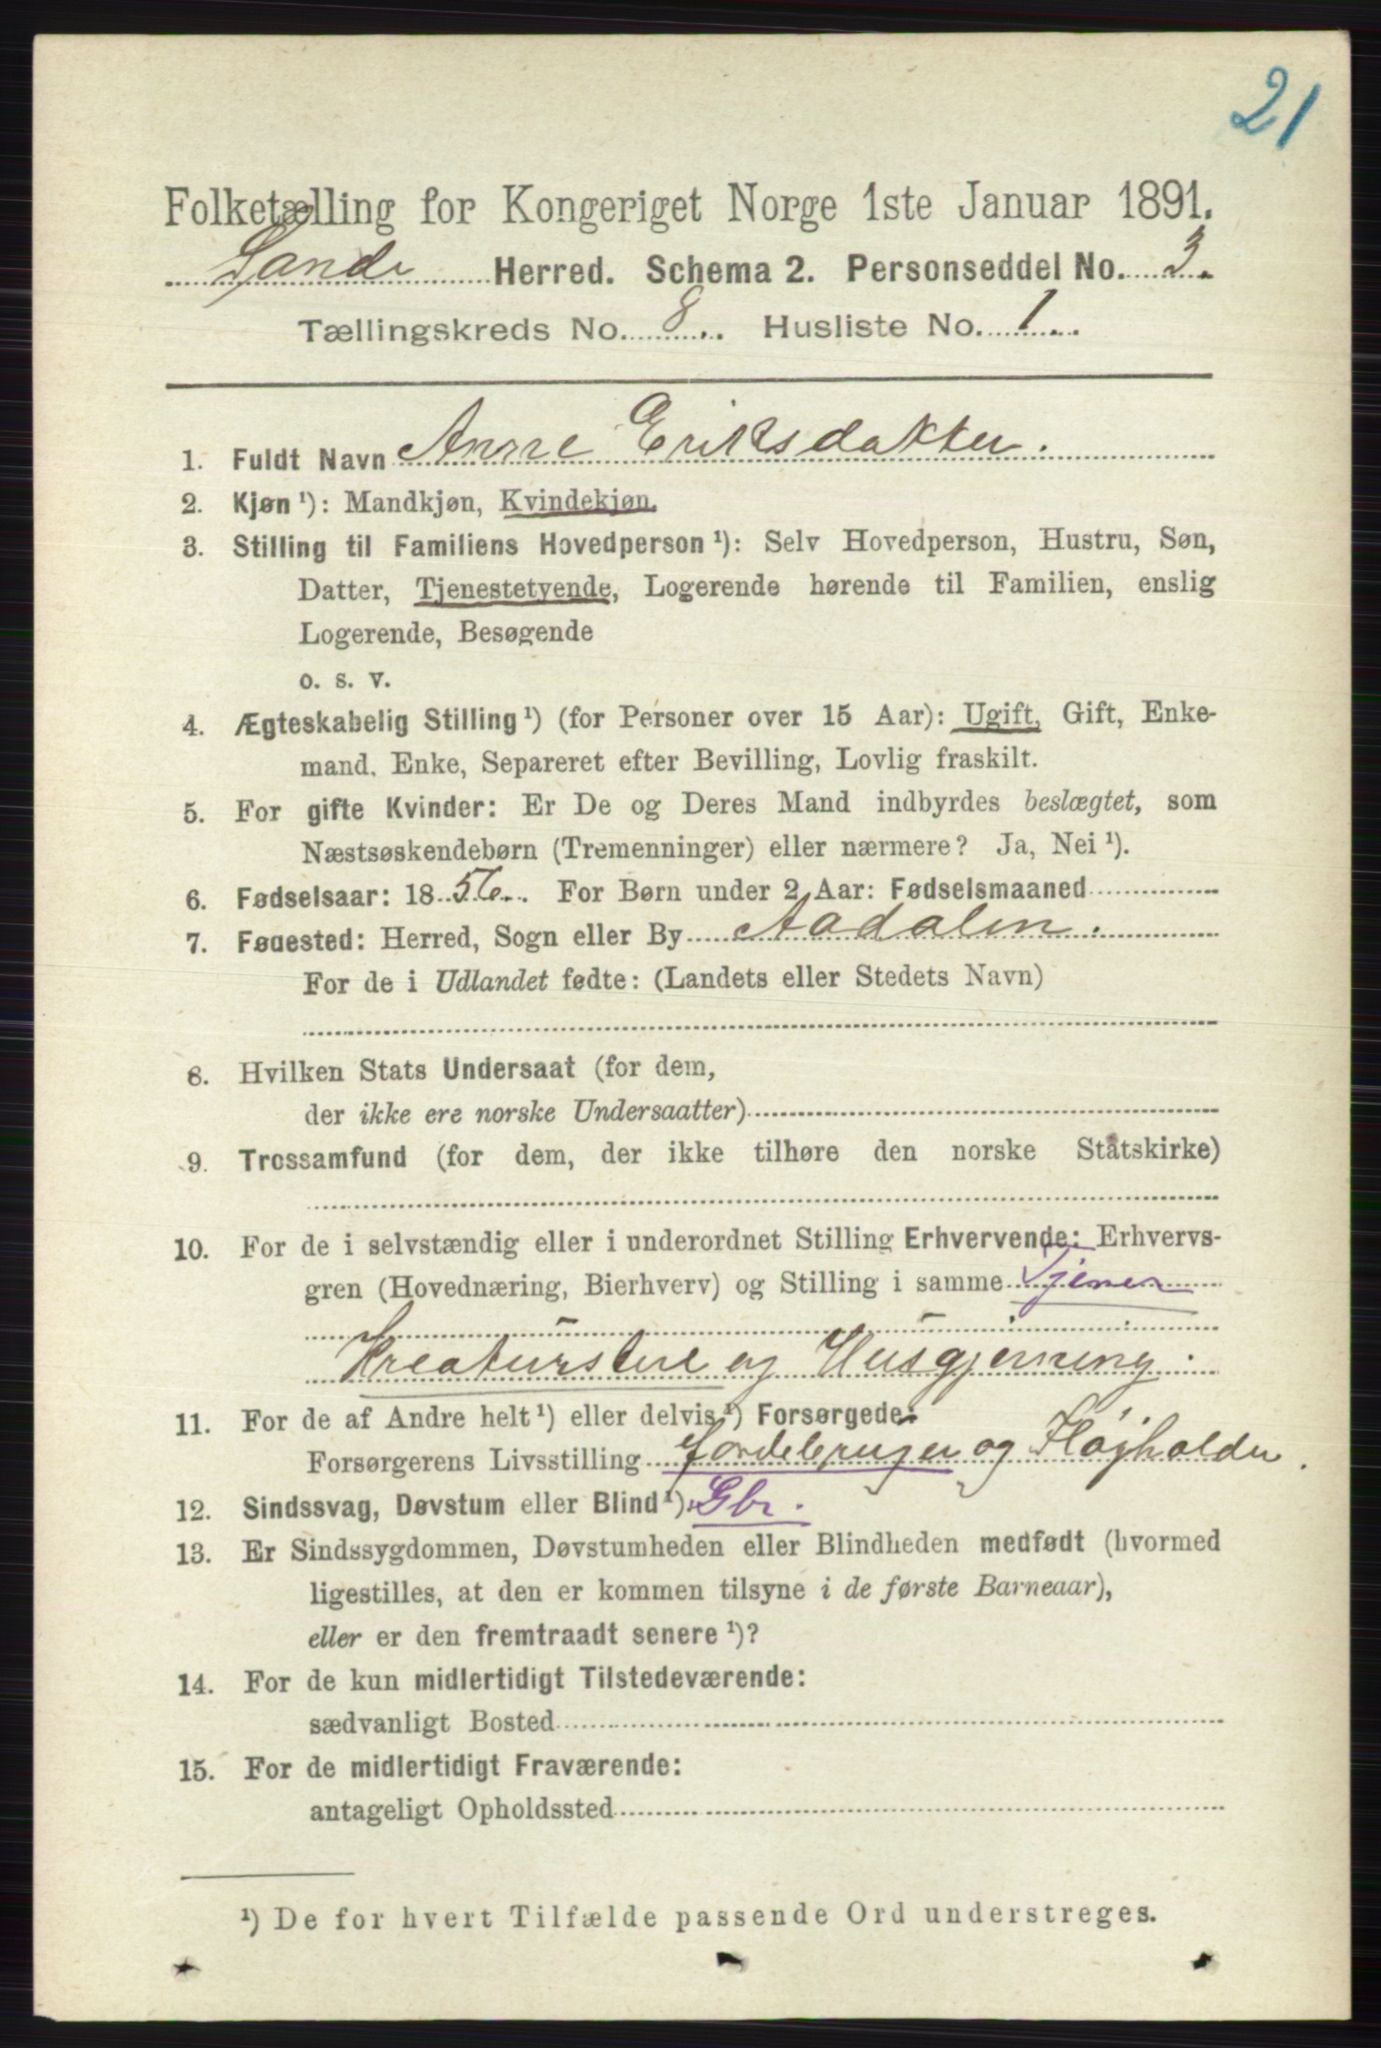 21
Folketælling for Kongeriget Norge 1ste Januar 1891.
Sande Herred. Schema 2. Personseddel No. 3.
Tællingskreds No. 8. Husliste No. 1.
1. Fuldt Navn Anne Eriksdatter.
2. Kjøn ¹): Mandkjøn, Kvindekjøn.
3. Stilling til Familiens Hovedperson ¹): Selv Hovedperson, Hustru, Søn,
Datter, Tjenestetyende, Logerende hørende til Familien, enslig
Logerende, Besøgende
o. s. v.
4. Ægteskabelig Stilling ¹) (for Personer over 15 Aar): Ugift, Gift, Enke-
mand, Enke, Separeret efter Bevilling, Lovlig fraskilt.
5. For gifte Kvinder: Er De og Deres Mand indbyrdes beslægtet, som
Næstsøskendebørn (Tremenninger) eller nærmere? Ja, Nei ¹).
6. Fødselsaar: 1856. For Børn under 2 Aar: Fødselsmaaned
7. Fødested: Herred, Sogn eller By Aadalen.
For de i Udlandet fødte: (Landets eller Stedets Navn)
8. Hvilken Stats Undersaat (for dem,
der ikke ere norske Undersaatter)
9. Trossamfund (for dem, der ikke tilhøre den norske Statskirke)
10. For de i selvstændig eller i underordnet Stilling Erhvervende: Erhvervs-
gren (Hovednæring, Bierhverv) og Stilling i samme Tjener
Kreaturstue og Husgjerning.
11. For de af Andre helt ¹) eller delvis ¹) Forsørgede:
Forsørgerens Livsstilling Jordebruger og Fløjholder.
12. Sindssvag, Døvstum eller Blind ¹). Gbr.
13. Er Sindssygdommen, Døvstumheden eller Blindheden medfødt (hvormed
ligestilles, at den er kommen tilsyne i de første Barneaar),
eller er den fremtraadt senere ¹)?
14. For de kun midlertidigt Tilstedeværende:
sædvanligt Bosted
15. For de midlertidigt Fraværende:
antageligt Opholdssted
¹) De for hvert Tilfælde passende Ord understreges.